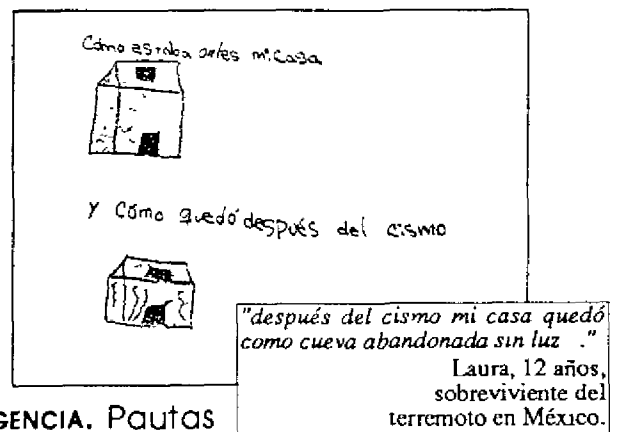 Cómo estaba antes mi casa
y Cómo quedó después del cismo
"después del cismo mi casa quedó
como cueva abandonada sin luz ."
Laura, 12 años,
sobreviviente del
terremoto en México.
GENCIA. Pautas